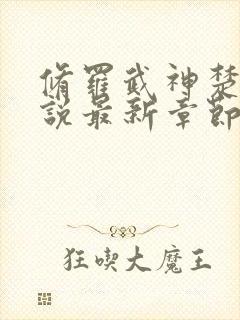 脩羅武神楚
說最新章節
狂喫大魔王